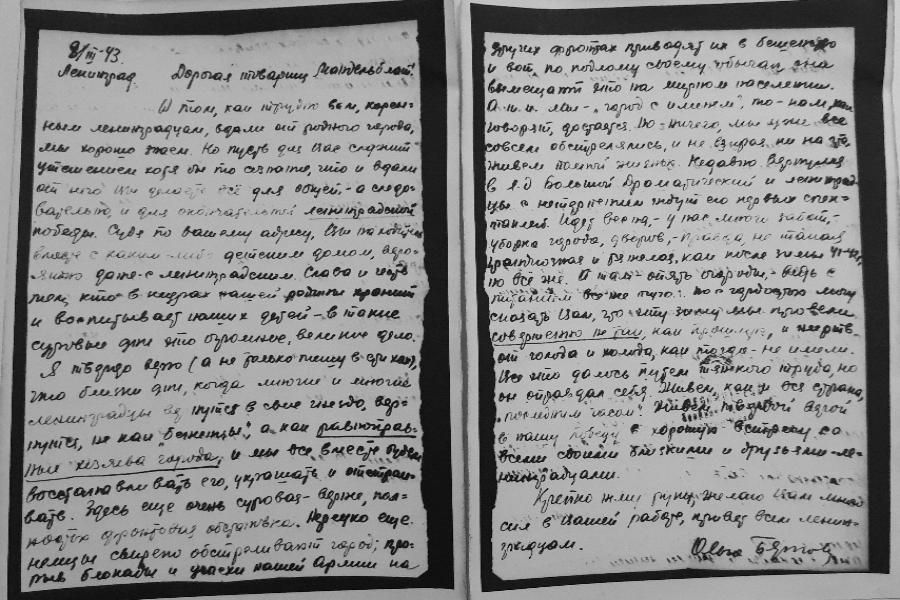 8/III-43.
Ленинград. Дорогая товарищ Мандельблат!
О том, как трудно вам, корен-
ным ленинградцам, вдали от родного города,
мы хорошо знаем. Но пусть для Вас служит
утешением хотя бы то сознание, что и вдали
от него Вы делаете всё для общей, - а следо-
вательно, и для окончательной ленинградской
победы. Судя по вашему адресу, Вы находитесь
вместе с каким-либо детским домом, веро-
ятно даже с ленинградским. Слава и честь
тем, кто в недрах нашей родины хранит
и воспитывает наших детей - в такие
суровые дни это огромное, великое дело.
Я твердо верю (а не только пишу в стихах),
что близки дни, когда многие и многие
ленинградцы вернутся в свое гнездо, вер-
нутся, не как "беженцы", а как равноправ-
ные хозяева города, и мы все вместе будем
восстанавливать его, украшать и отстраи-
вать. Здесь еще очень суровая - вернее, пол-
ностью фронтовая обстановка. Нередко еще
немцы свирепо обстреливают город; про-
рыв блокады и успехи нашей Армии на
других фронтах приводят их в бешенство
и вот, по подлому своему обычаю, они
вымещают это на мирном населении.
А т.к. мы - "город с именем", то - нам, как
говорят, достается. Но - ничего, мы уже все
совсем обстрелялись, и не взирая ни на что
живем полной жизнью. Недавно вернулся
в Л-д Большой Драматический и ленинград-
цы с нетерпением ждут его первых спек-
таклей. Идет весна, - у нас много забот, -
уборка города, дворов, - правда, не такая
грандиозная и тяжелая, как после зимы 41-42 г,
но всё же. А там - опять огороды, - ведь с
питанием все же туго. Но с гордостью могу
сказать Вам, что эту зиму мы провели
совершенно не так, как прошлую, и жертв
от голода и холода, как тогда - не имели.
Все это далось путем тяжкого труда, но
он оправдал себя. Живем, как и вся страна,
"последним часом". Живем твердой верой
в нашу победу и хорошую встречу со
всеми своими близкими и друзьями-ле-
нинградцами.
Крепко жму руку, желаю Вам много
сил в Вашей работе, привет всем ленин-
градцам.
Ольга Берггольц